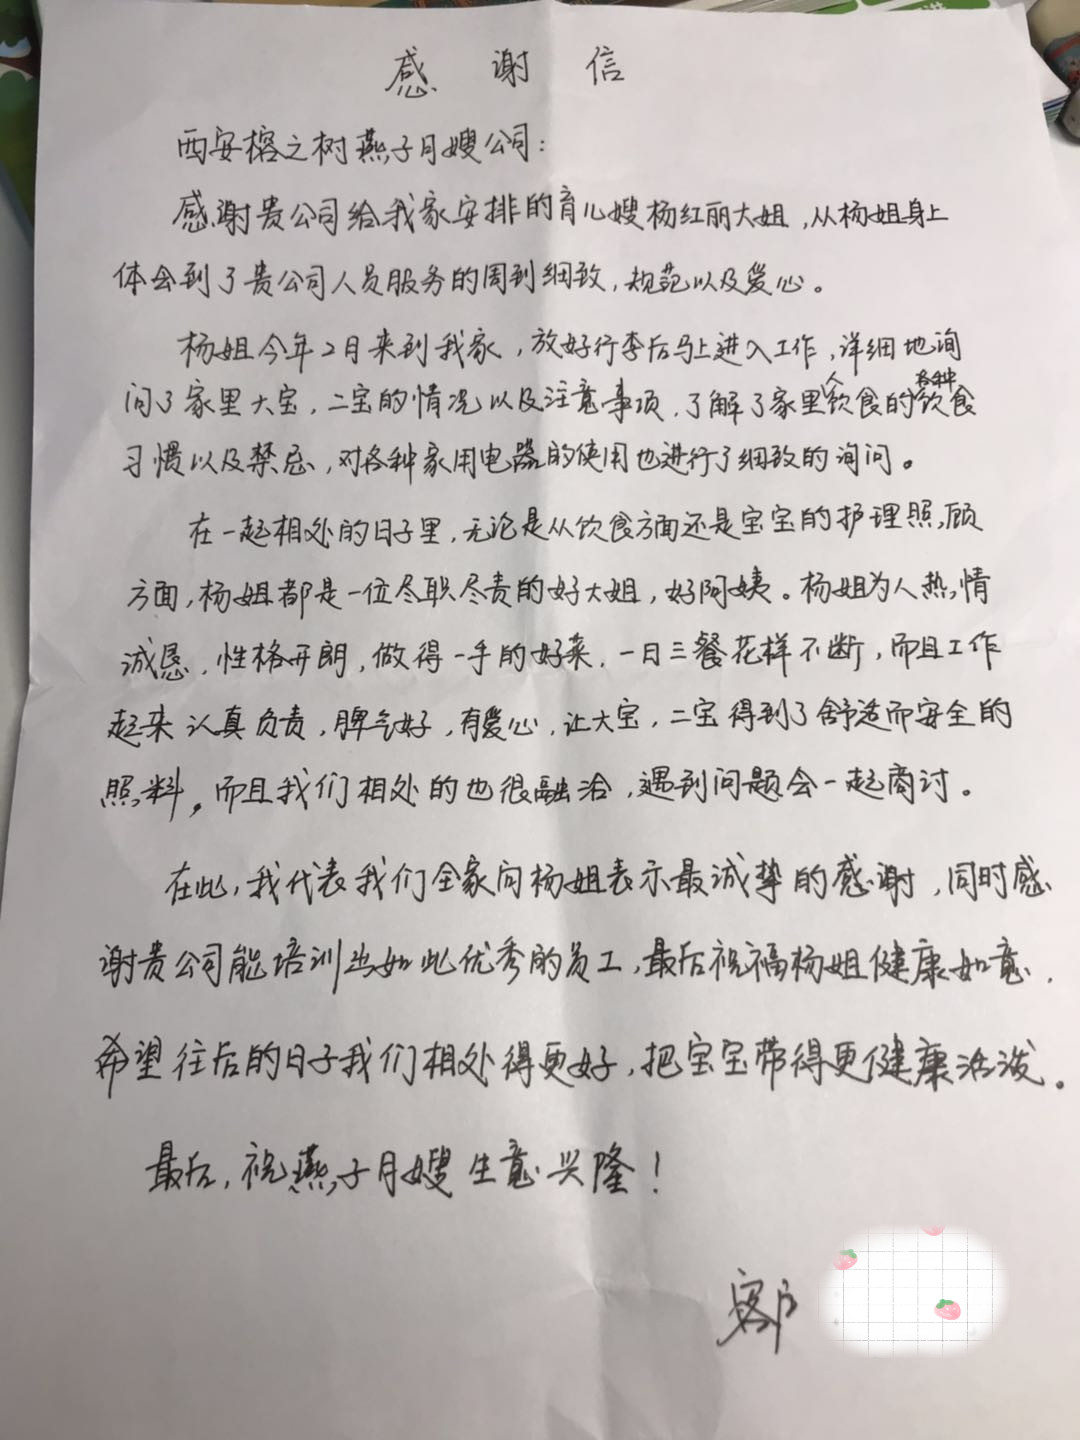 感谢信
西安榕之树燕子月嫂公司:
感谢贵公司给我家安排的育儿嫂杨红丽大姐,从杨姐身上
体会到了贵公司人员服务的周到细致,规范以及爱心。
杨姐今年2月来到我家,放好行李后马上进入工作,详细地询
问了家里大宝,二宝的情况以及注意事项,了解了家里人饮食的各种饮食
习惯以及禁忌,对各种家用电器的使用也进行了细致的询问。
在一起相处的日子里,无论是从饮食方面还是宝宝的护理照顾
方面,杨姐都是一位尽职尽责的好大姐,好阿姨。杨姐为人热情
诚恳,性格开朗,做得一手的好菜,一日三餐花样不断,而且工作
起来认真负责,脾气好,有爱心,让大宝,二宝得到了舒适而安全的
照料。而且我们相处的也很融洽,遇到问题会一起商讨。
在此,我代表我们全家向杨姐表示最诚挚的感谢,同时感
谢贵公司能培训出如此优秀的员工,最后祝福杨姐健康如意,
希望往后的日子我们相处得更好,把宝宝带得更健康活泼。
最后,祝燕子月嫂生意兴隆!
客户